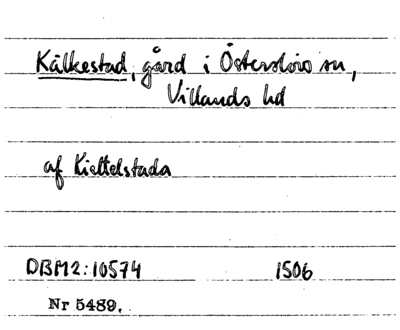 Kälkestad, gård i Österslövs sn,
Villands hd
af Kieltelstada
DBM2:10574 1506
Nr 5489.